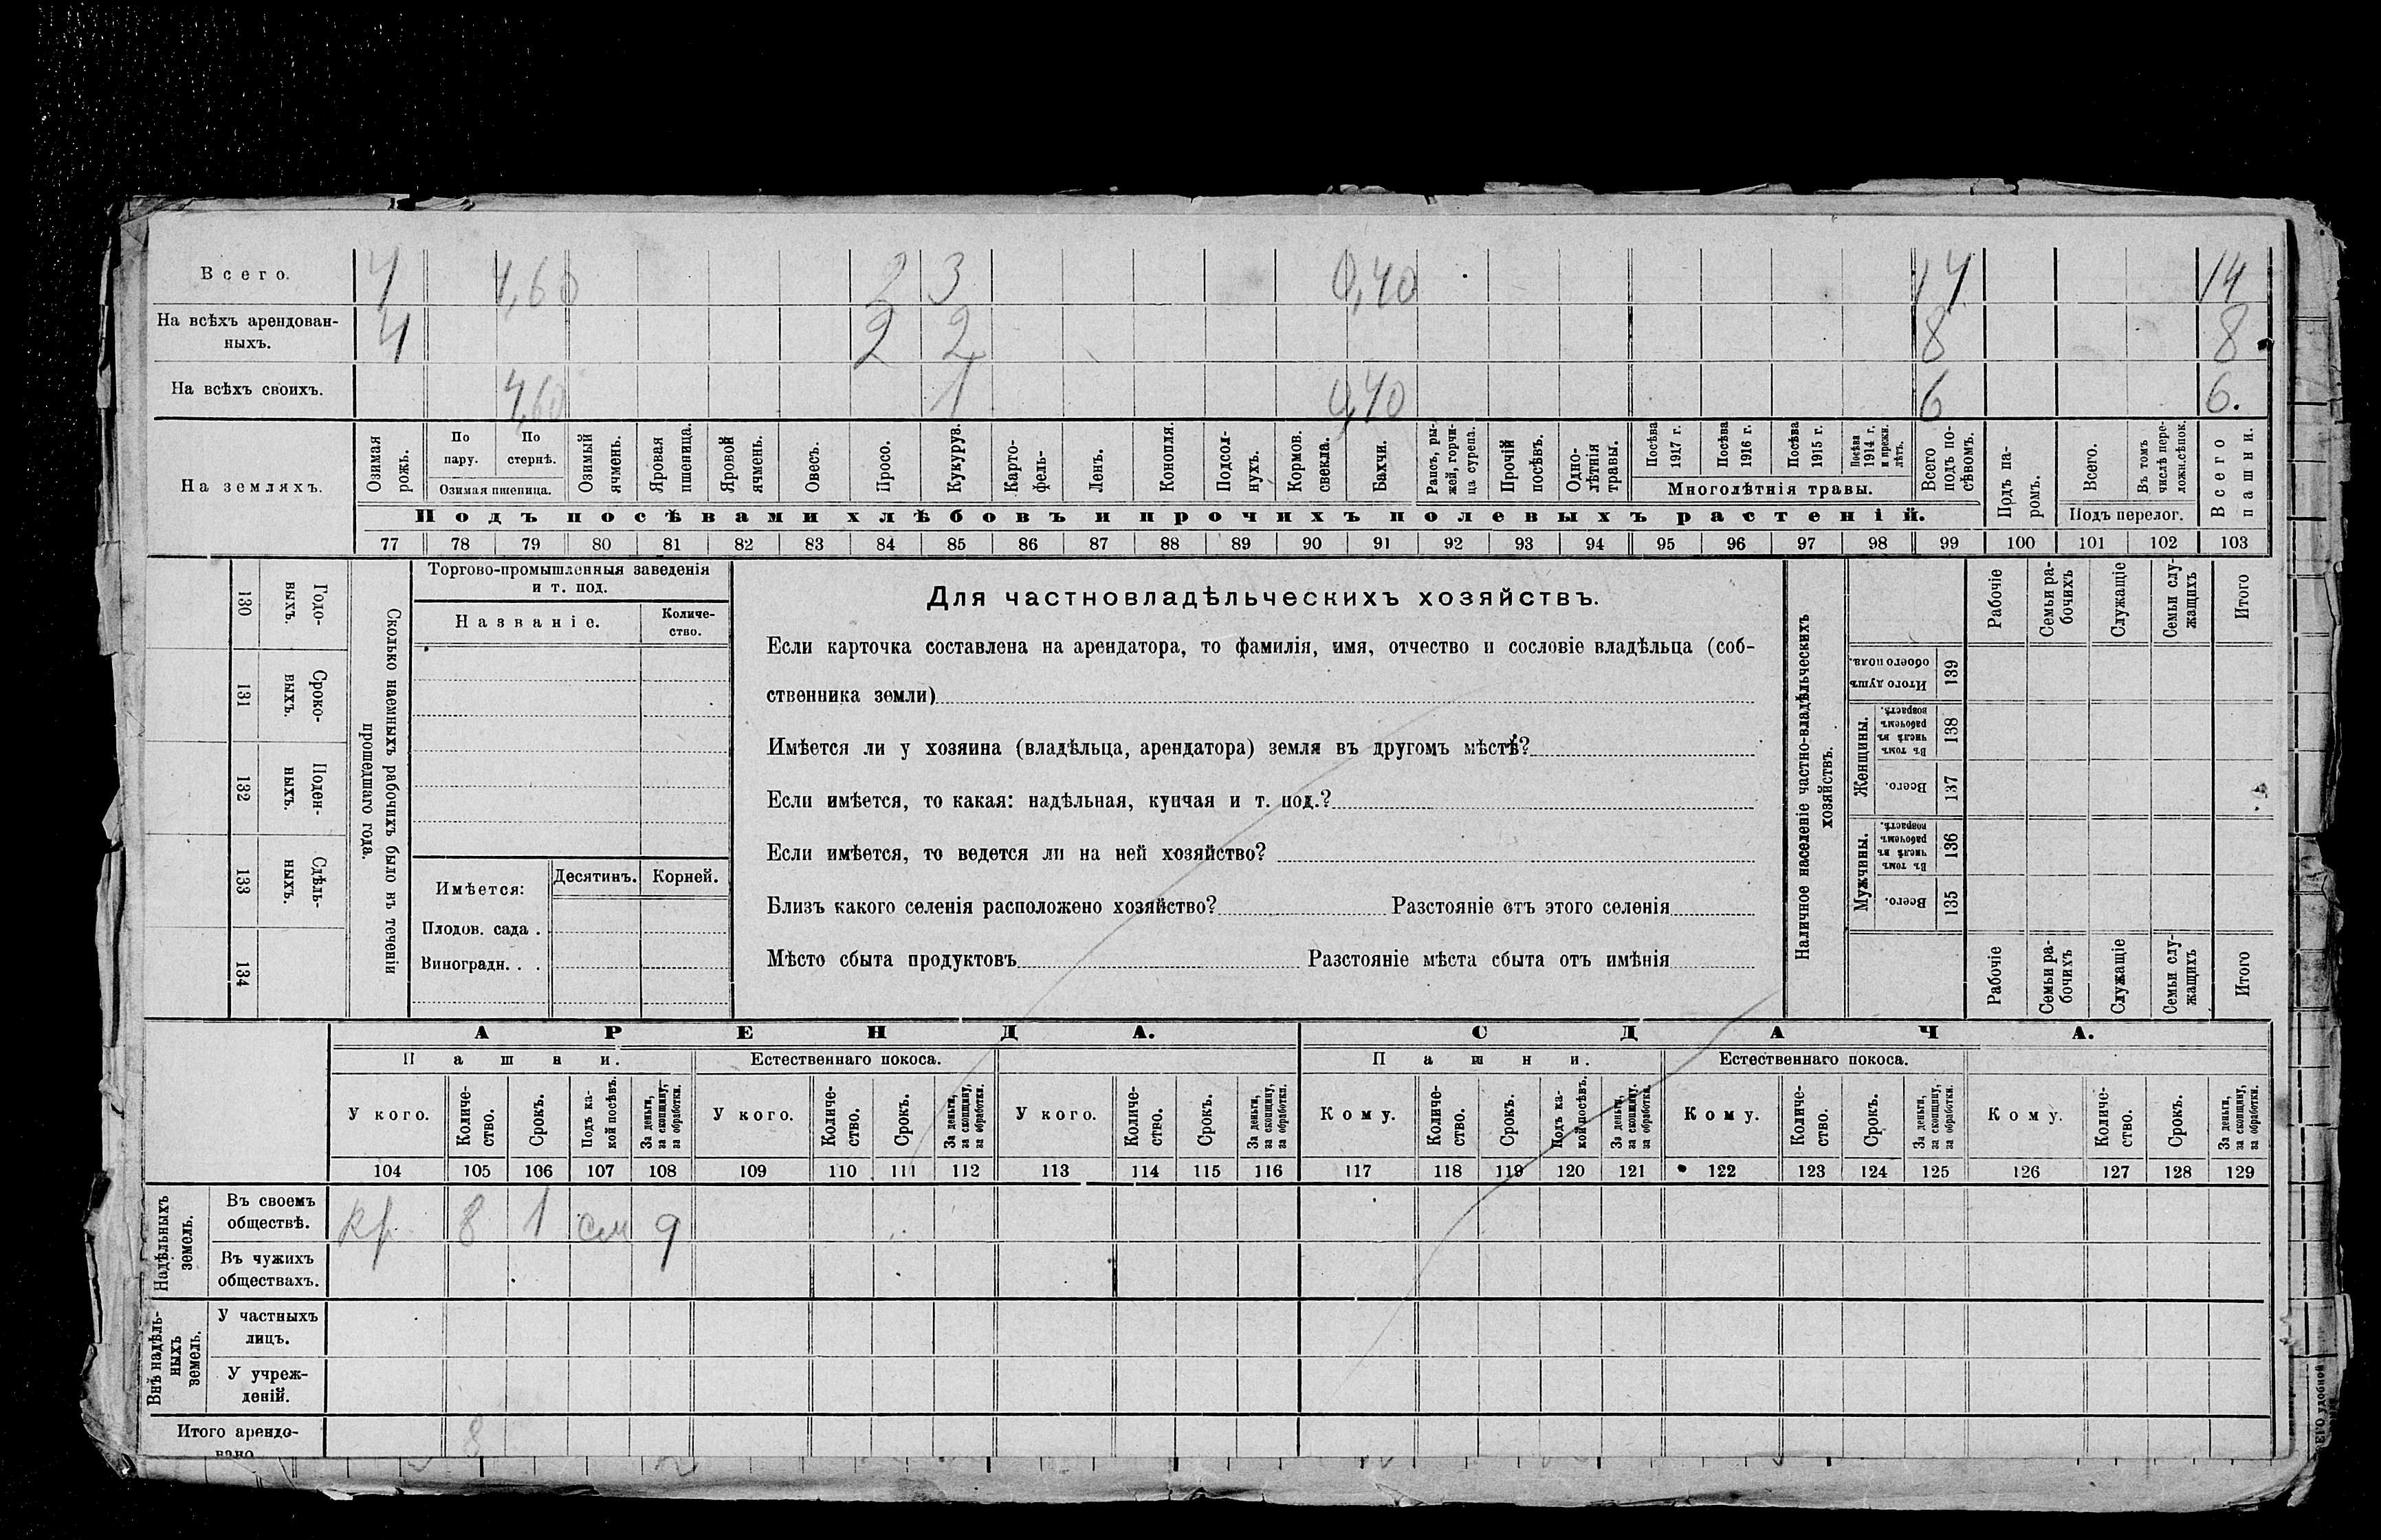 Всего. 4 4,60 2 3 0,40 14 14
На всѣхъ арендован-
ныхъ. 4 2 2 8 8
На всѣхъ своихъ. 4,60 1 0,40 6 6.
На земляхъ.
Озимая рожь.
По пару.
По стернѣ.
Озимая пшеница.
Озимый ячмень.
Яровая пшеница.
Яровой ячмень.
Овесъ.
Просо.
Кукуруз.
Карто-
фель-
Ленъ.
Конопля.
Подсол-
нухъ.
Кормов. свекла.
Бахчи.
Рапсъ, ры-
жей, горчи-
ца сурепа.
Прочій посѣвъ.
Одно-
лѣтнія травы.
Посѣва 1917 г.
Посѣва 1916 г.
Посѣва 1915 г.
Посѣва 1914 г. и прежн. лѣтъ.
Многолѣтнія травы.
Всего подъ по-
сѣвомъ.
Подъ па-
ромъ.
Всего.
Въ томъ числѣ пере-
ложн.сѣнок.
Подъ перелог.
Всего пашни.
Подъ посѣвами хлѣбовъ и прочихъ полевыхъ растеній.
77 78 79 80 81 82 83 84 85 86 87 88 89 90 91 92 93 94 95 96 97 98 99 100 101 102 103
130 Годо-
выхъ.
131 Сроко-
выхъ.
132 Поден-
ныхъ.
133 Сдѣль-
ныхъ.
134
Сколько наемныхъ рабочихъ было въ теченіи
прошедшаго года.
Торгово-промышленныя заведенія
и т. под.
Названіе.
Количе-
ство.
Имѣется:
Десятинъ. Корней.
Плодов. сада .
Виноградн. . .
Для частновладѣльческихъ хозяйствъ.
Если карточка составлена на арендатора, то фамилія, имя, отчество и сословіе владѣльца (соб-
ственника земли)
Имѣется ли у хозяина (владѣльца, арендатора) земля въ другомъ мѣстѣ?
Если имѣется, то какая: надѣльная, купчая и т. под.?
Если имѣется, то ведется ли на ней хозяйство?
Близъ какого селенія расположено хозяйство? Разстояніе отъ этого селенія
Мѣсто сбыта продуктовъ Разстояніе мѣста сбыта отъ имѣнія
Наличное населеніе частно-владѣльческихъ
хозяйствъ.
Рабочіе
Семьи ра-
бочихъ
Служащіе
Семьи слу-
жащихъ
Итого
Итого душъ обоего пола. 139
Женщины.
Въ томъ числѣ въ рабочемъ возрастѣ. 138
Всего. 137
Мужчины.
Въ томъ числѣ въ рабочемъ возрастѣ. 136
Всего. 135
Рабочіе
Семьи ра-
бочихъ
Служащіе
Семьи слу-
жащихъ
Итого
АРЕНДА. СДАЧА.
Пашни. Естественнаго покоса. Пашни. Естественнаго покоса.
У кого.
Количе-
ство.
Срокъ.
Подъ ка-
кой посѣвъ.
За деньги, за скопщину, за обработки.
У кого.
Количе-
ство.
Срокъ.
За деньги, за скопщину, за обработки.
У кого.
Количе-
ство.
Срокъ.
За деньги, за скопщину, за обработки.
Кому.
Количе-
ство.
Срокъ.
Подъ ка-
кой посѣвъ.
За деньги, за скопщину, за обработки.
Кому.
Количе-
ство.
Срокъ.
За деньги, за скопщину, за обработки.
Кому.
Количе-
ство.
Срокъ.
За деньги, за скопщину, за обработки.
104 105 106 107 108 109 110 111 112 113 114 115 116 117 118 119 120 121 122 123 124 125 126 127 128 129
Надѣльныхъ земель.
Въ своемъ
обществѣ. кр 8 1 см 9
Въ чужихъ
обществахъ.
Внѣ надѣль-
ныхъ земель.
У частныхъ
лицъ.
У учреж-
деній.
Итого арендо-
вано 8
ЕГО удобной